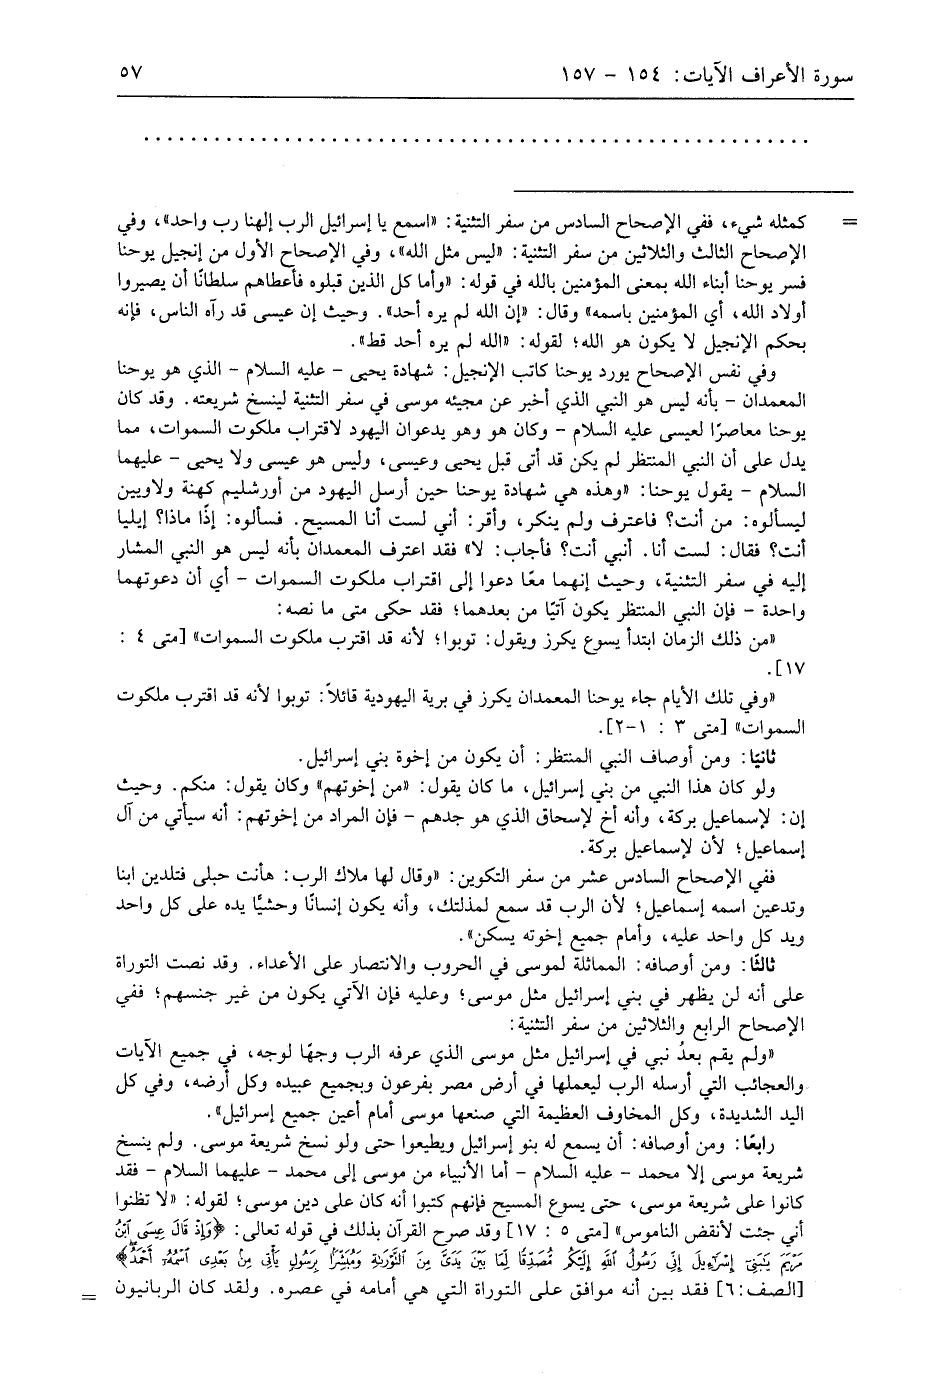 سورة الأعراف الآيات: ١٥٤ - ١٥٧ ٥٧
. . . . . . . . . . . . . . . . . . . . . . . . . . . . . . . . . . . . . . . . . . . . . . . . . . . . . .
= كمثله شيء، ففي الإصحاح السادس من سفر التثنية: «اسمع يا إسرائيل الرب إلهنا رب واحد»، وفي
الإصحاح الثالث والثلاثين من سفر التثنية: «ليس مثل الله»، وفي الإصحاح الأول من إنجيل يوحنا
فسر يوحنا أبناء الله بمعنى المؤمنين بالله في قوله: «وأما كل الذين قبلوه فأعطاهم سلطانًا أن يصيروا
أولاد الله، أي المؤمنين باسمه» وقال: «إن الله لم يره أحد». وحيث إن عيسى قد رآه الناس، فإنه
بحكم الإنجيل لا يكون هو الله؛ لقوله: «الله لم يره أحد قط».
وفي نفس الإصحاح يورد يوحنا كاتب الإنجيل: شهادة يحيى - عليه السلام - الذي هو يوحنا
المعمدان - بأنه ليس هو النبي الذي أخبر عن مجيئه موسى في سفر التثنية لينسخ شريعته. وقد كان
يوحنا معاصرًا لعيسى عليه السلام - وكان هو وهو يدعوان اليهود لاقتراب ملكوت السموات، مما
يدل على أن النبي المنتظر لم يكن قد أتى قبل يحيى وعيسى، وليس هو عيسى ولا يحيى - عليهما
السلام - يقول يوحنا: «وهذه هي شهادة يوحنا حين أرسل اليهود من أورشليم كهنة ولاويين
ليسألوه: من أنت؟ فاعترف ولم ينكر، وأقر: أني لست أنا المسيح. فسألوه: إذًا ماذا؟ إيليا
أنت؟ فقال: لست أنا. أنبي أنت؟ فأجاب: لا» فقد اعترف المعمدان بأنه ليس هو النبي المشار
إليه في سفر التثنية، وحيث إنهما معًا دعوا إلى اقتراب ملكوت السموات - أي أن دعوتهما
واحدة - فإن النبي المنتظر يكون آتيًا من بعدهما؛ فقد حكى متى ما نصه:
«من ذلك الزمان ابتدأ يسوع يكرز ويقول: توبوا؛ لأنه قد اقترب ملكوت السموات» [متى ٤ :
١٧].
«وفي تلك الأيام جاء يوحنا المعمدان يكرز في برية اليهودية قائلاً: توبوا لأنه قد اقترب ملكوت
السموات» [متى ٣ : ١-٢].
ثانيًا: ومن أوصاف النبي المنتظر: أن يكون من إخوة بني إسرائيل.
ولو كان هذا النبي من بني إسرائيل، ما كان يقول: «من إخوتهم» وكان يقول: منكم. وحيث
إن: لإسماعيل بركة، وأنه أخ لإسحاق الذي هو جدهم - فإن المراد من إخوتهم: أنه سيأتي من آل
إسماعيل؛ لأن لإسماعيل بركة.
ففي الإصحاح السادس عشر من سفر التكوين: «وقال لها ملاك الرب: هأنت حبلى فتلدين ابنا
وتدعين اسمه إسماعيل؛ لأن الرب قد سمع لمذلتك، وأنه يكون إنسانًا وحشيًا يده على كل واحد
ويد كل واحد عليه، وأمام جميع إخوته يسكن».
ثالثًا: ومن أوصافه: المماثلة لموسى في الحروب والانتصار على الأعداء. وقد نصت التوراة
على أنه لن يظهر في بني إسرائيل مثل موسى؛ وعليه فإن الآتي يكون من غير جنسهم؛ ففي
الإصحاح الرابع والثلاثين من سفر التثنية:
«ولم يقم بعدُ نبي في إسرائيل مثل موسى الذي عرفه الرب وجهًا لوجه، في جميع الآيات
والعجائب التي أرسله الرب ليعملها في أرض مصر بفرعون وبجميع عبيده وكل أرضه، وفي كل
اليد الشديدة، وكل المخاوف العظيمة التي صنعها موسى أمام أعين جميع إسرائيل».
رابعًا: ومن أوصافه: أن يسمع له بنو إسرائيل ويطيعوا حتى ولو نسخ شريعة موسى. ولم ينسخ
شريعة موسى إلا محمد - عليه السلام - أما الأنبياء من موسى إلى محمد - عليهما السلام - فقد
كانوا على شريعة موسى، حتى يسوع المسيح فإنهم كتبوا أنه كان على دين موسى؛ لقوله: «لا تظنوا
أني جئت لأنقض الناموس» [متى ٥ : ١٧] وقد صرح القرآن بذلك في قوله تعالى: ﴿وَإِذْ قَالَ عِيسَى ٱبْنُ
مَرْيَمَ يَٰبَنِىٓ إِسْرَٰٓءِيلَ إِنِّى رَسُولُ ٱللَّهِ إِلَيْكُم مُّصَدِّقًا لِّمَا بَيْنَ يَدَىَّ مِنَ ٱلتَّوْرَىٰةِ وَمُبَشِّرًۢا بِرَسُولٍ يَأْتِى مِنۢ بَعْدِى ٱسْمُهُۥٓ أَحْمَدُ﴾
[الصف:٦] فقد بين أنه موافق على التوراة التي هي أمامه في عصره. ولقد كان الربانيون =